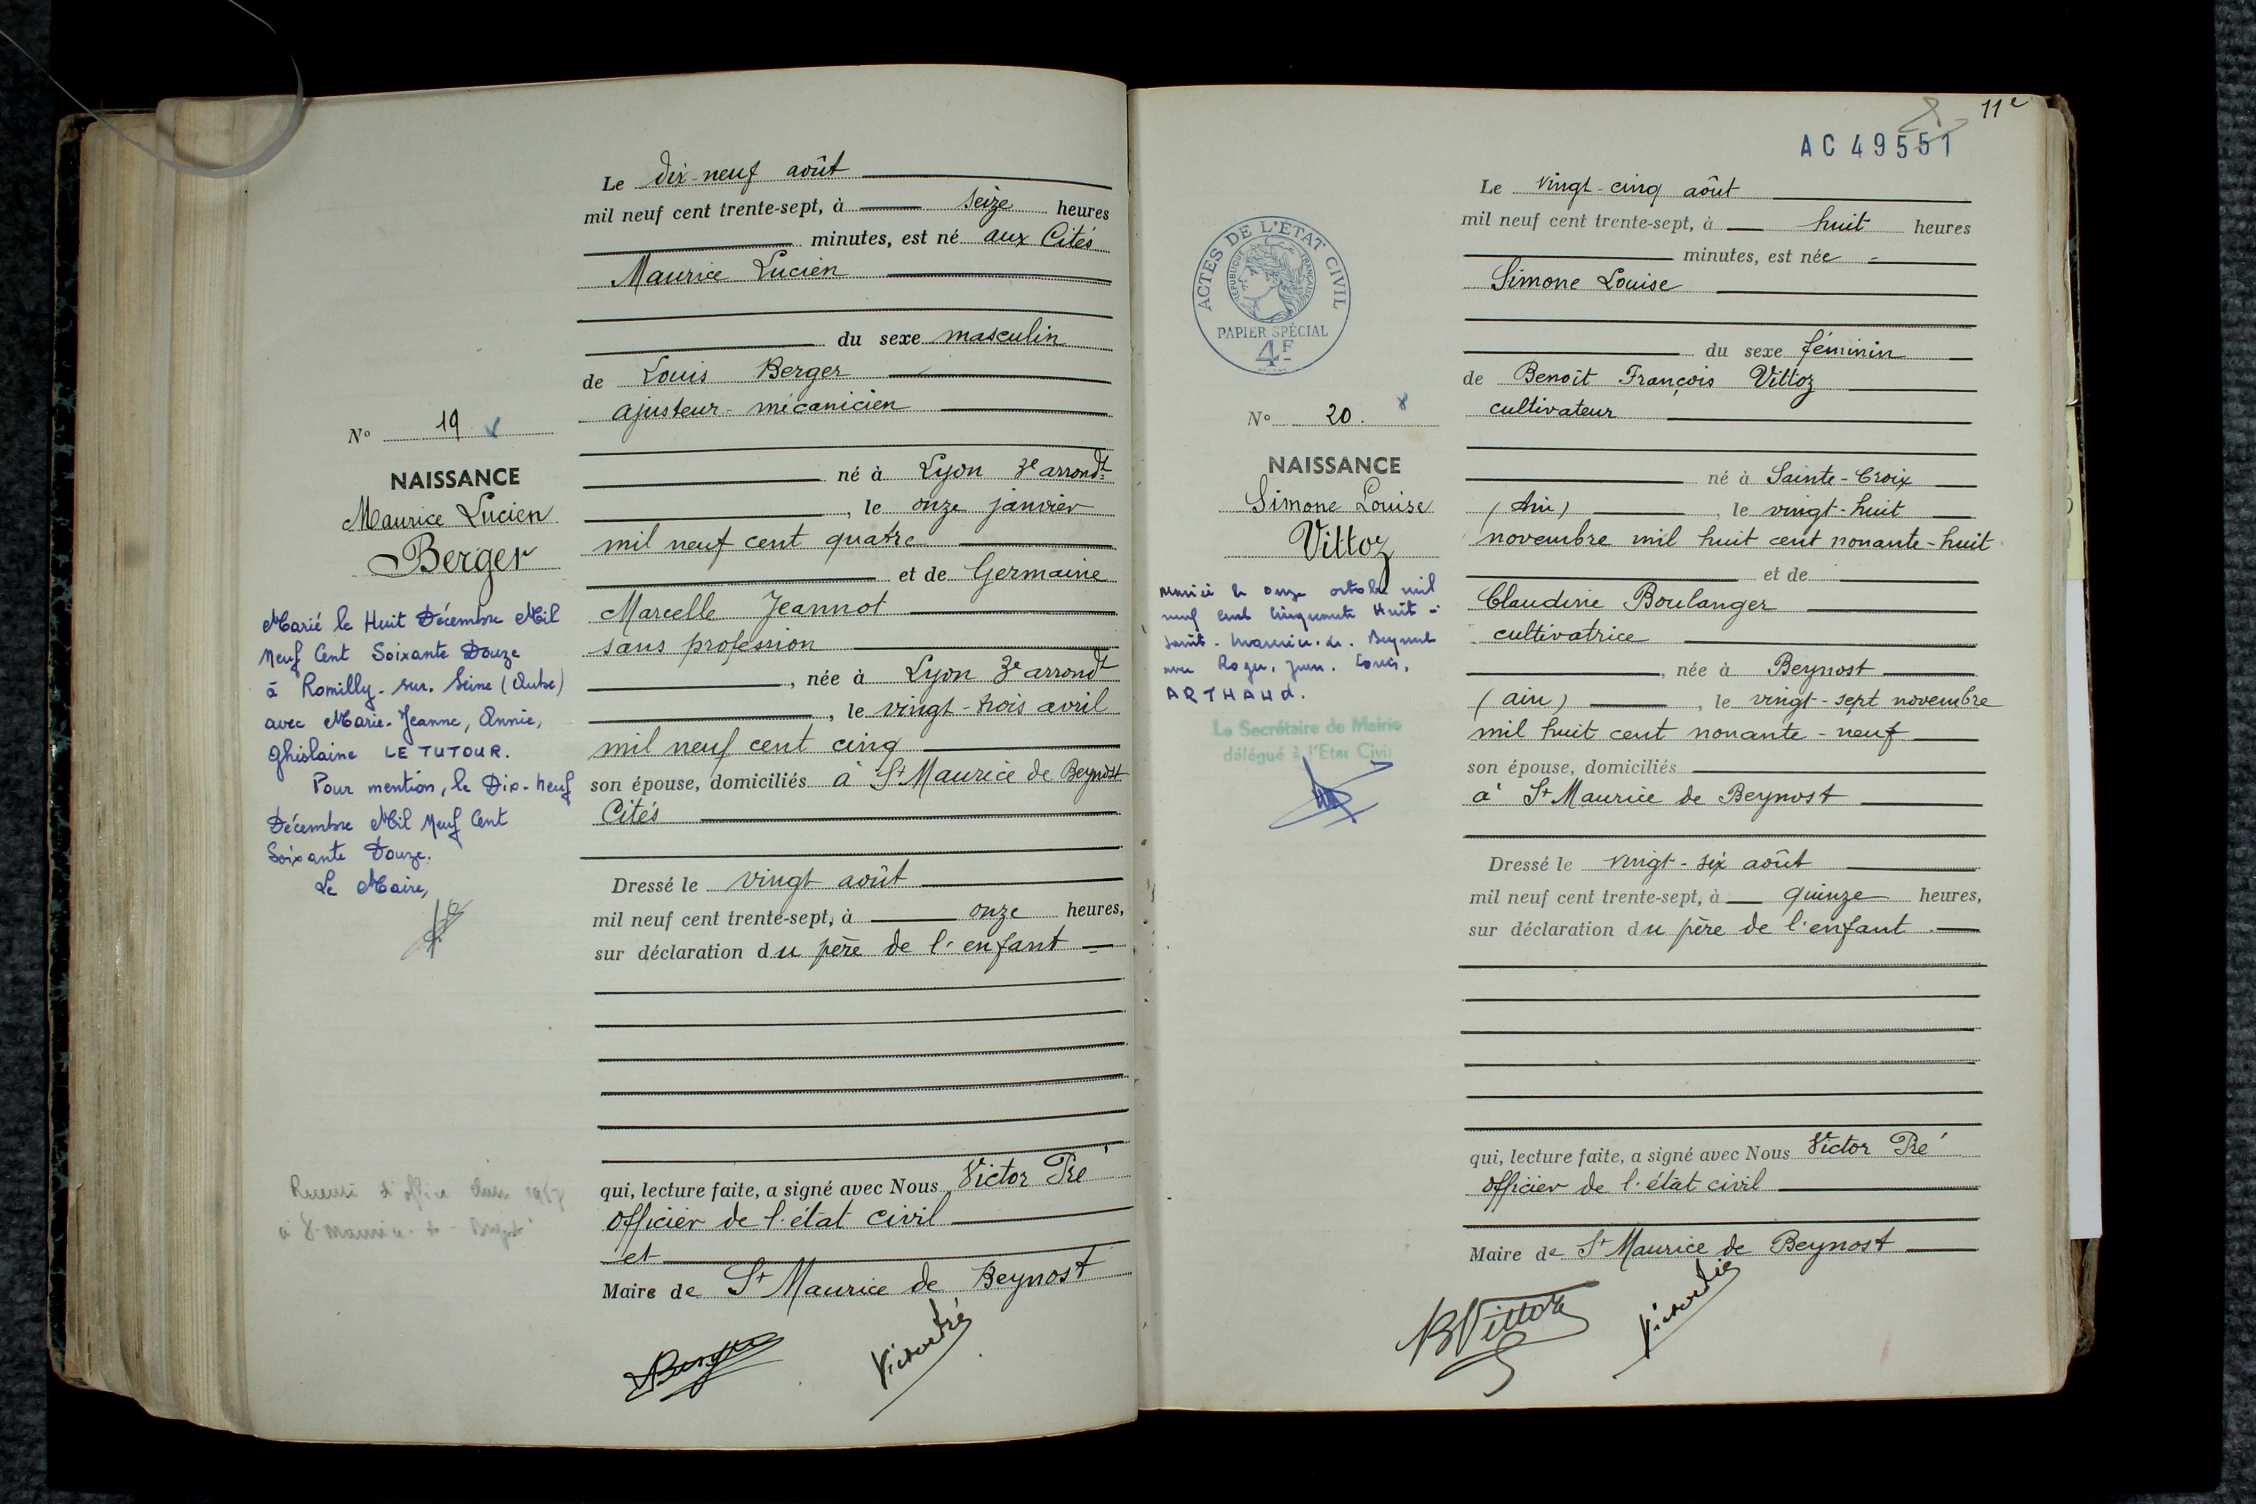 Le dix-neuf août
mil neuf cent trente-sept, à seize heures
minutes, est né aux Cités
Maurice Lucien
du sexe masculin
de Louis Berger
ajusteur-mécanicien
né à Lyon 3e arrondt
, le onze janvier
mil neuf cent quatre
et de Germaine
Marcelle Jeannot
sans profession
, née à Lyon 3e arrondt
, le vingt-trois avril
mil neuf cent cinq
son épouse, domiciliés à St Maurice de Beynost
Cités
Dressé le vingt août
mil neuf cent trente-sept, à onze heures,
sur déclaration du père de l'enfant
qui, lecture faite, a signé avec Nous Victor Pré
Officier de l'état civil
et
Maire de St Maurice de Beynost
Berger
N° 19
NAISSANCE
Maurice Lucien
Berger
Marié le Huit Décembre Mil
Neuf Cent Soixante Douze
à Romilly-sur-Seine (Aube)
avec Marie-Jeanne, Annie,
Ghislaine LE TUTOUR.
Pour mention, le Dix-Neuf
Décembre Mil Neuf Cent
Soixante Douze.
Le Maire,
11e
AC 49551
ACTES DE L'ETAT CIVIL
REPUBLIQUE FRANÇAISE
PAPIER SPÉCIAL
4F
N° 20.
NAISSANCE
Simone Louise
Vittoz
Mariée le onze octobre mil
neuf cent cinquante Huit à
Saint-Maurice-de-Beynost
avec Roger, Louis,
ARTHAUd.
Le Secrétaire de Mairie
délégué à l'Etat Civil
Le vingt-cinq août
mil neuf cent trente-sept, à huit heures
minutes, est née
Simone Louise
du sexe féminin
de Benoît François Vittoz
cultivateur
né à Sainte-Croix
(Ain) , le vingt-huit
novembre mil huit cent nonante-huit
et de
Claudine Boulanger
cultivatrice
, née à Beynost
(ain) , le vingt-sept novembre
mil huit cent nonante-neuf
son épouse, domiciliés
à St Maurice de Beynost
Dressé le vingt-six août
mil neuf cent trente-sept, à quinze heures,
sur déclaration du père de l'enfant
qui, lecture faite, a signé avec Nous Victor Pré
Officier de l'état civil
Maire de St Maurice de Beynost
BVittoz